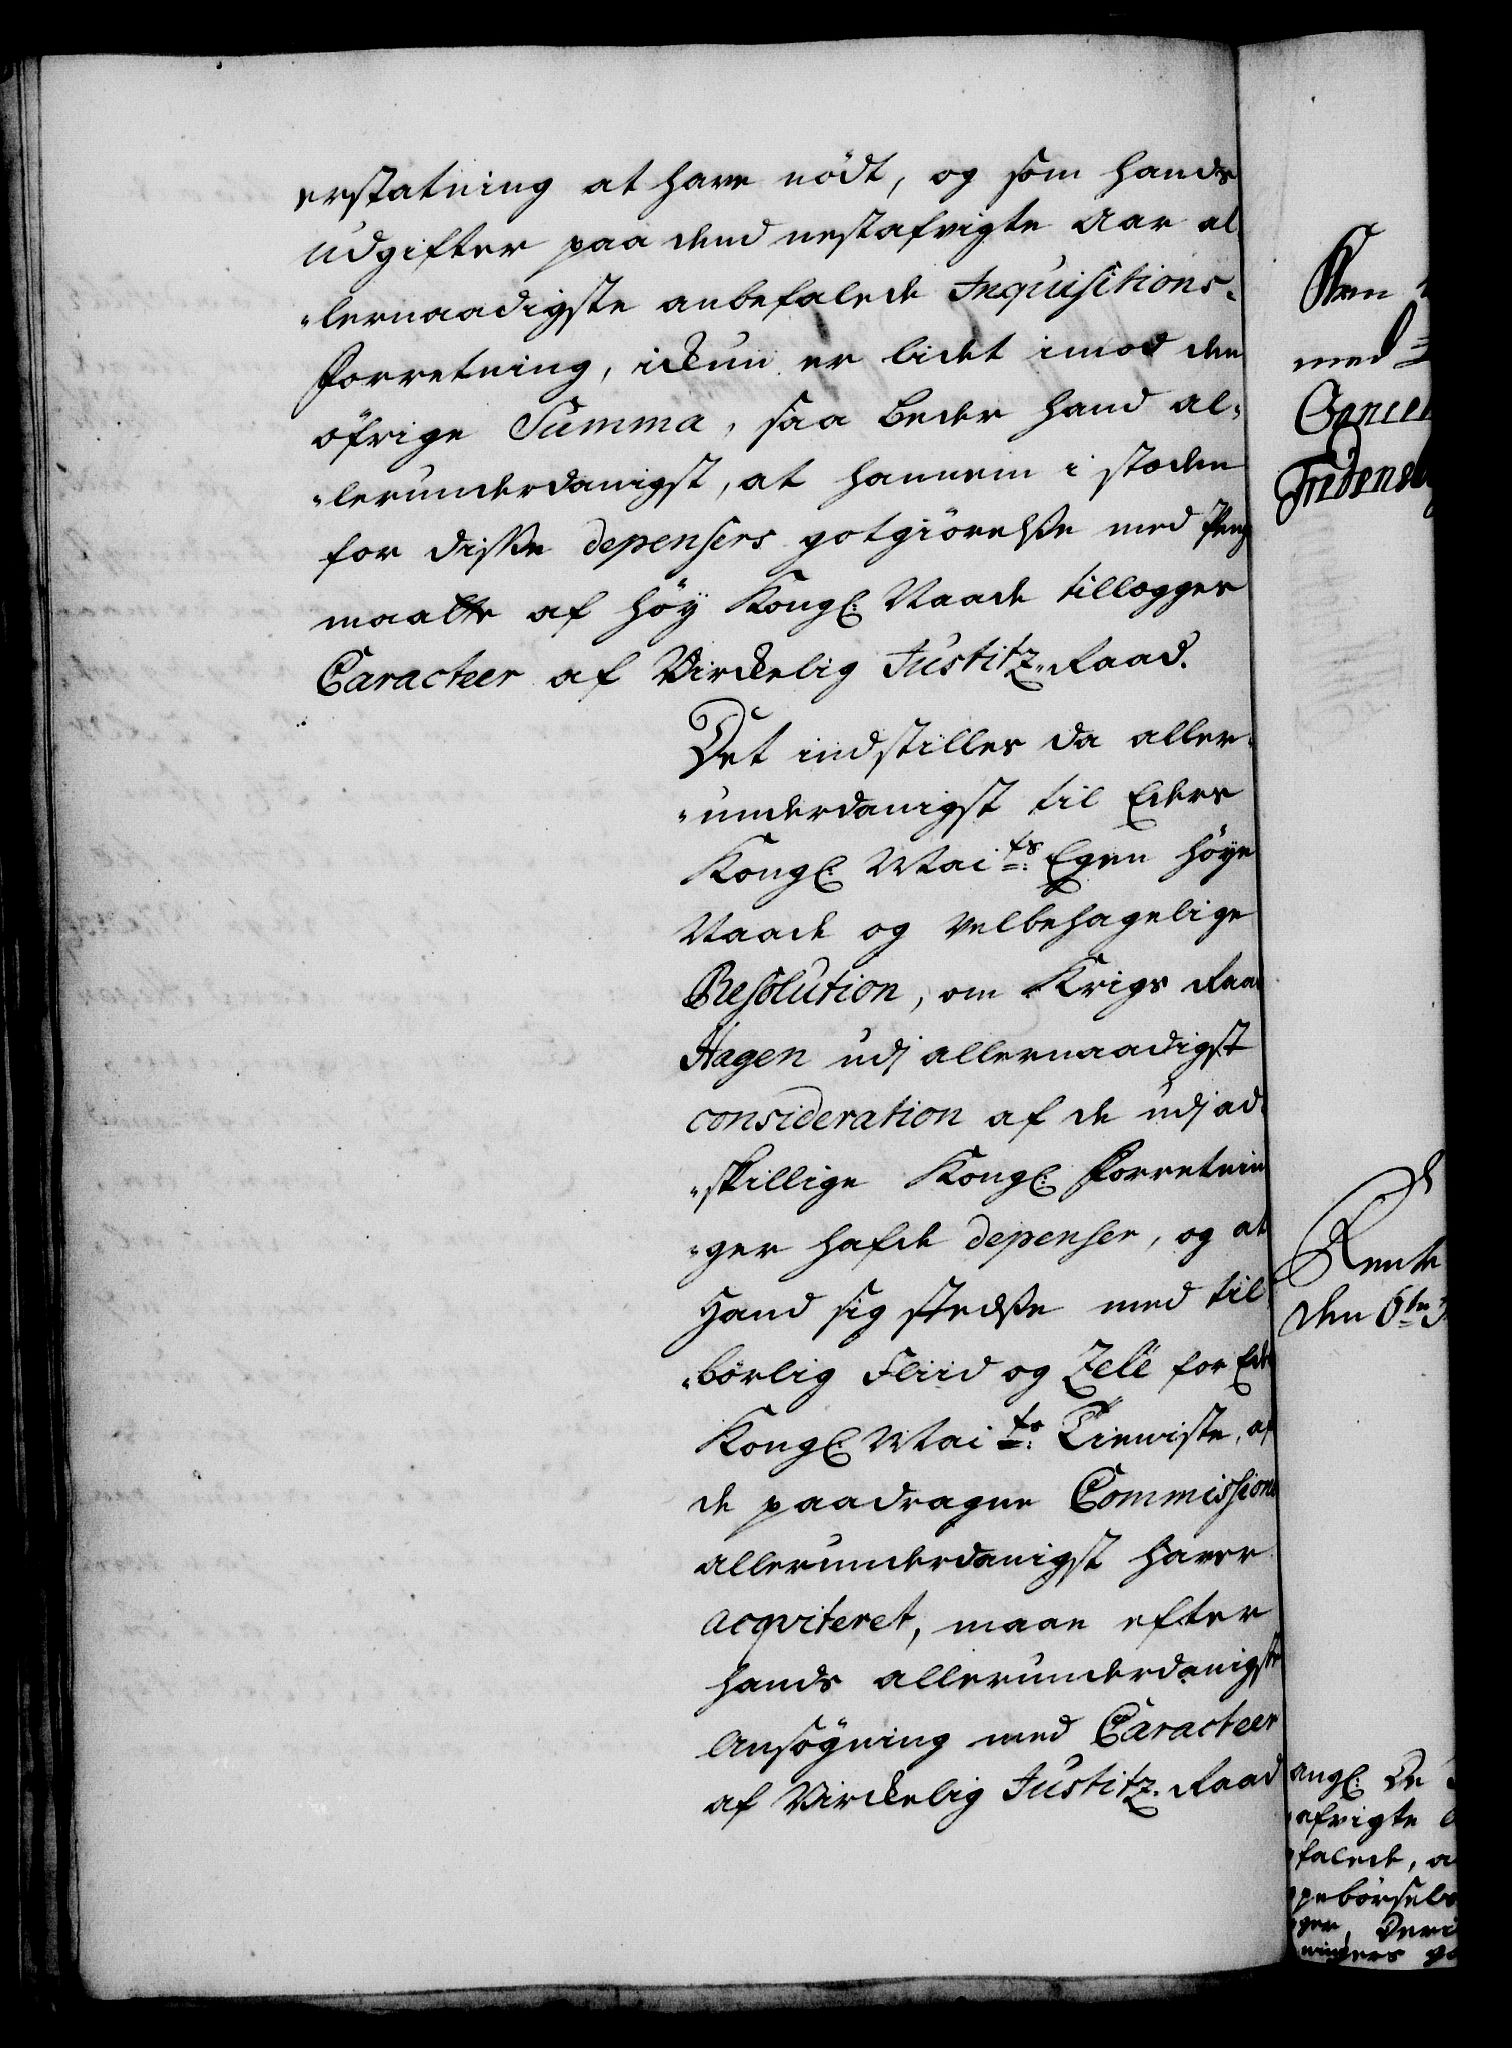 erstatning at have nödt, og som hands
udgifter paa dend nestafvigte Aar al
"lernaadigste anbefalede Inquisitions-
forretning, ickun er lidet imod den
öfrige Summa, saa beder hand al-
"lerunderdanigst, at hannem i stæden
for disse depensers gotgiörelse med Peng
maatte af höy Kongl. Naade tillegges
Caracteer af Virckelig Justitz-Raad.
Det indstilles da aller-
"underdanigst til Eders
Kongl. Mai.ts Egen höye
Naade og velbehagelige
Resolution, om Krigs Raad
Hagen udj allernaadigst
consideration af de udj ad-
"skillige Kongl. forretnin
"ger hafde depenser, og at
Hand sig stedse med til-
"börlig Fliid og Zele for Ed
Kongl. Mai.ts Tieniste, af
de paadragne Commissions
allerunderdanigst haver
acqviteret, maae efter
hands allerunderdanigste
Ansögning med Caracteer
af Virckelig Justitz-Raad
med
Cancel
Fredensb
Rente
den 6te
angl. De
afvigte
falede, a
pebörsels
ger, Deri